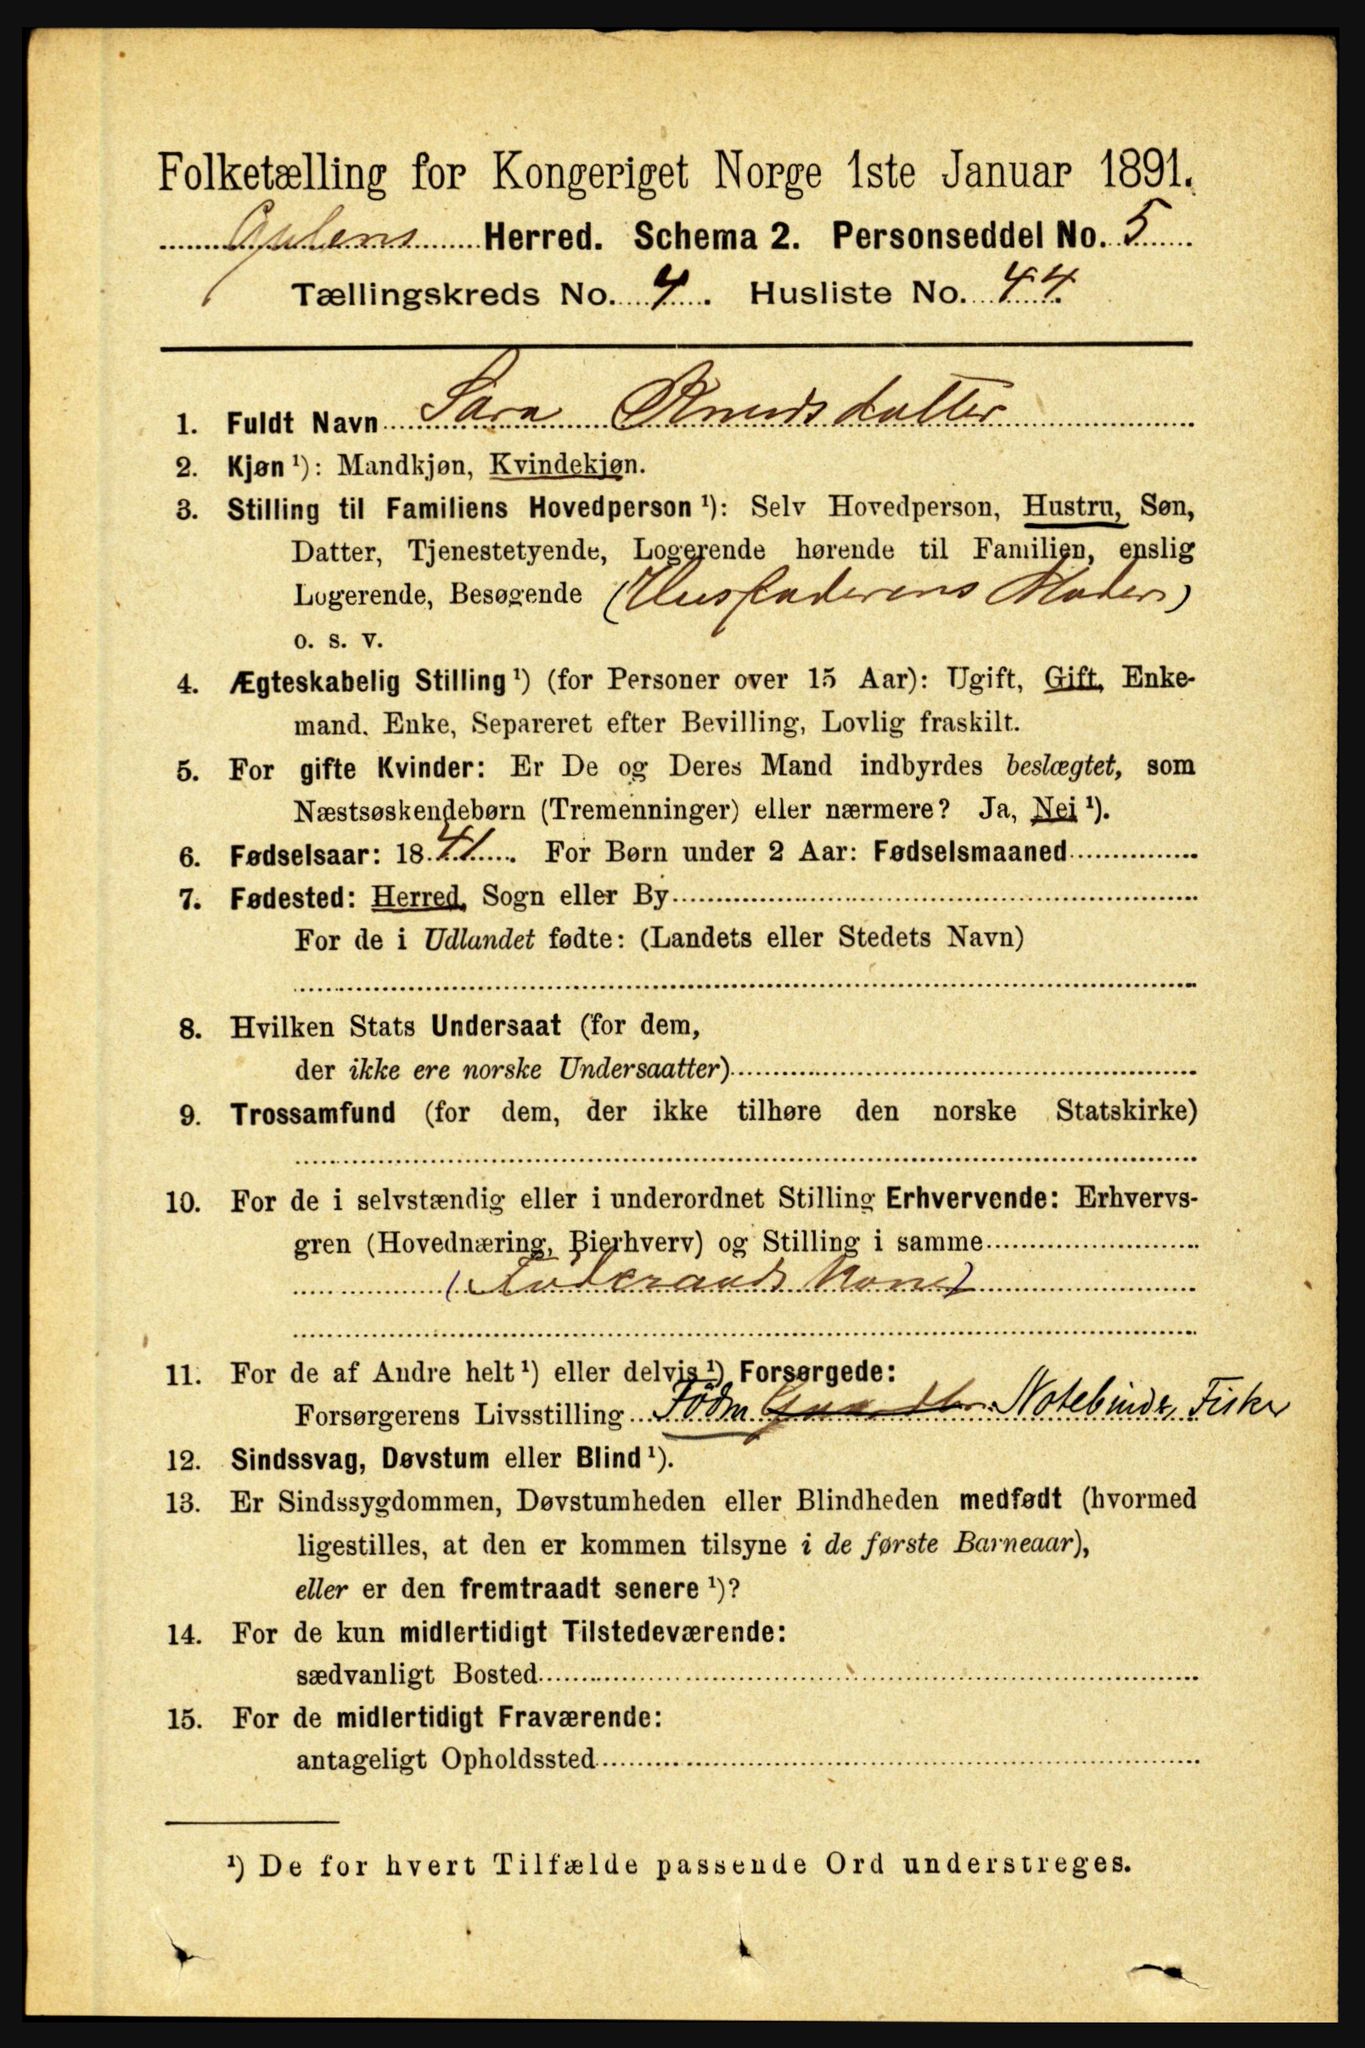 Folketælling for Kongeriget Norge 1ste Januar 1891.
Gulens Herred. Schema 2. Personseddel No. 5
Tællingskreds No. 4. Husliste No. 44
1. Fuldt Navn Sara Knudsdatter
2. Kjøn ¹): Mandkjøn, Kvindekjøn.
3. Stilling til Familiens Hovedperson ¹): Selv Hovedperson, Hustru, Søn,
Datter, Tjenestetyende, Logerende hørende til Familien, enslig
Logerende, Besøgende (Husfaderens Moder)
o. s. v.
4. Ægteskabelig Stilling ¹) (for Personer over 15 Aar): Ugift, Gift, Enke-
mand, Enke, Separeret efter Bevilling, Lovlig fraskilt.
5. For gifte Kvinder: Er De og Deres Mand indbyrdes beslægtet, som
Næstsøskendebørn (Tremenninger) eller nærmere? Ja, Nei ¹).
6. Fødselsaar: 1841. For Børn under 2 Aar: Fødselsmaaned
7. Fødested: Herred, Sogn eller By
For de i Udlandet fødte: (Landets eller Stedets Navn)
8. Hvilken Stats Undersaat (for dem,
der ikke ere norske Undersaatter)
9. Trossamfund (for dem, der ikke tilhøre den norske Statskirke)
10. For de i selvstændig eller i underordnet Stilling Erhvervende: Erhvervs-
gren (Hovednæring, Bierhverv) og Stilling i samme
(Föderaads Kone)
11. For de af Andre helt ¹) eller delvis ¹) Forsørgede:
Forsørgerens Livsstilling Födm Notebinder, Fisker
12. Sindssvag, Døvstum eller Blind ¹).
13. Er Sindssygdommen, Døvstumheden eller Blindheden medfødt (hvormed
ligestilles, at den er kommen tilsyne i de første Barneaar),
eller er den fremtraadt senere ¹)?
14. For de kun midlertidigt Tilstedeværende:
sædvanligt Bosted
15. For de midlertidigt Fraværende:
antageligt Opholdssted
¹) De for hvert Tilfælde passende Ord understreges.